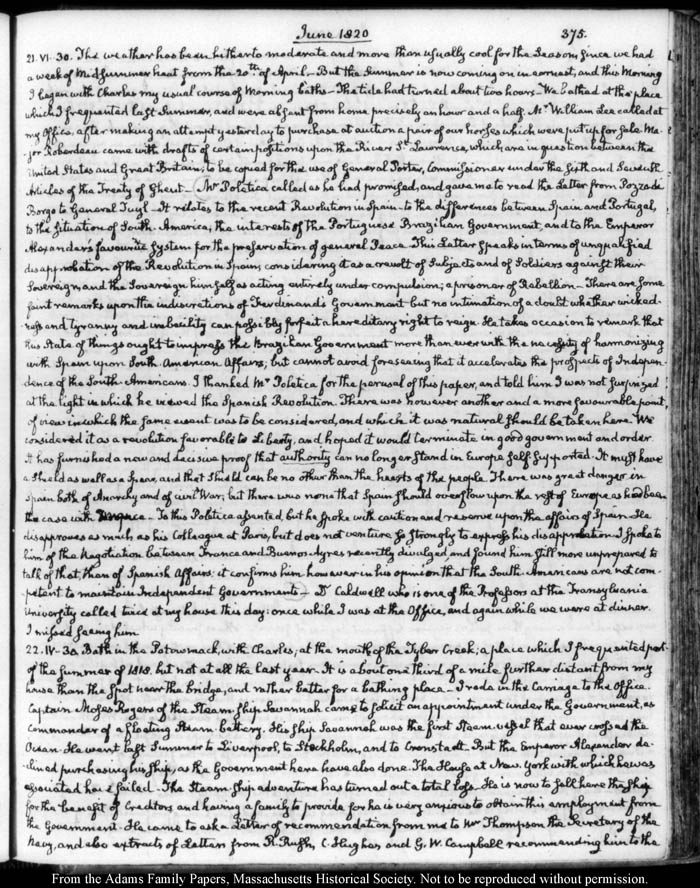 June 1820
375.
21. VI. 30. The weather has been hitherto moderate and more than usually cool for the Season, since we had
a week of Midsummer heat from the 20th of April_ But the Summer is now coming on in earnest, and this Morning
I began with Charles my usual course of Morning baths_ The tide had turned about two hours_ We bathed at the place
which I frequented last Summer, and were absent from home precisely an hour and a half. Mr William Lee called at
my Office, after making an attempt yesterday to purchase at auction a pair of our horses which were put up for Sale. Ma-
jor Roberdeau came with drafts of certain positions upon the River St. Lawrence, which are in question between the
United States and Great Britain; to be copied for the use of General Porter, Commissioner under the sixth and Seventh
Articles of the Treaty of Ghent_ Mr Poletica called as he had promised, and gave me to read the Letter from Pozzo di
Borgo to General Tuyl_ It relates to the recent Revolution in Spain_ to the differences between Spain and Portugal,
to the Situation of South-America, the interests of the Portuguese Brazilian Government, and to the Emperor
Alexander's favourite System for the preservation of general Peace. This Letter speaks in terms of unqualified
disapprobation of the Revolution in Spain; considering it as a revolt of Subjects and of Soldiers against their
Sovereign and the Sovereign himself as acting entirely under compulsion; a prisoner of Rebellion_ There are some
faint remarks upon the indiscretions of Ferdinand's Government but no intimation of a doubt whether wicked-
ness and tyranny and imbecility can possibly forfeit a hereditary right to reign. He takes occasion to remark that
this State of things ought to impress the Brazilian Government more than ever with the necessity of harmonizing
with Spain upon South American Affairs; but cannot avoid foreseeing that it accelerates the prospects of Indepen-
dence of the South-Americans. I thanked Mr Poletica for the perusal of this paper, and told him I was not surprized
at the light in which he viewed the Spanish Revolution. There was however another and a more favourable point,
of view in which the same event was to be considered, and which it was natural should be taken here. We
considered it as a revolution favorable to Liberty, and hoped it would terminate in good government and order.
It has furnished a new and decisive proof that authority can no longer stand in Europe self supported. It must have
a Shield as well as a Spear, and that Shield can be no other than the hearts of the people. There was great danger in
Spain both of Anarchy and of civil War; but there was none that Spain should overflow upon the rest of Europe as had been
the case with France_ To this Poletica assented, but he spoke with caution and reserve upon the affairs of Spain. He
disapproves as much as his Colleague at Paris, but does not venture so strongly to express his disapprobation. I spoke to
him of the Negotiation between France and Buenos-Ayres recently divulged, and found him still more unprepared to
talk of that, than of Spanish Affairs: it confirms him however in his opinion that the South-Americans are not com-
petent to maintain Independent Governments_ Dr Caldwell who is one of the Professors at the Transylvania
University called twice at my house this day: once while I was at the Office, and again while we were at dinner.
I missed seeing him.
22. IV. 30. Bath in the Potowmack, with Charles, at the mouth of the Tyber Creek; a place which I frequented part
of the Summer of 1818. but not at all the last year. It is about one third of a mile further distant from my
house than the Spot near the bridge, and rather better for a bathing place_ I rode in the Carriage to the Office.
Captain Moses Rogers of the Steam Ship Savannah came to solicit an appointment under the Government, as
commander of a floating Steam battery. His Ship Savannah was the first Steam vessel that ever crossed the
Ocean. He went last Summer to Liverpool, to Stockholm, and to Cronstadt. But the Emperor Alexander de-
clined purchasing his Ship, as the Government here have also done. The House at New York with which he was
associated have failed. The Steam Ship adventure has turned out a total loss. He is now to sell here the Ship
for the benefit of Creditors and having a family to provide for he is very anxious to obtain this employment from
the Government. He came to ask a Letter of recommendation from me to Mr Thompson the Secretary of the
Navy, and also extracts of Letters from R. Rush, C. Hughes and G. W. Campbell recommending him to the
From the Adams Family Papers, Massachusetts Historical Society. Not to be reproduced without permission.